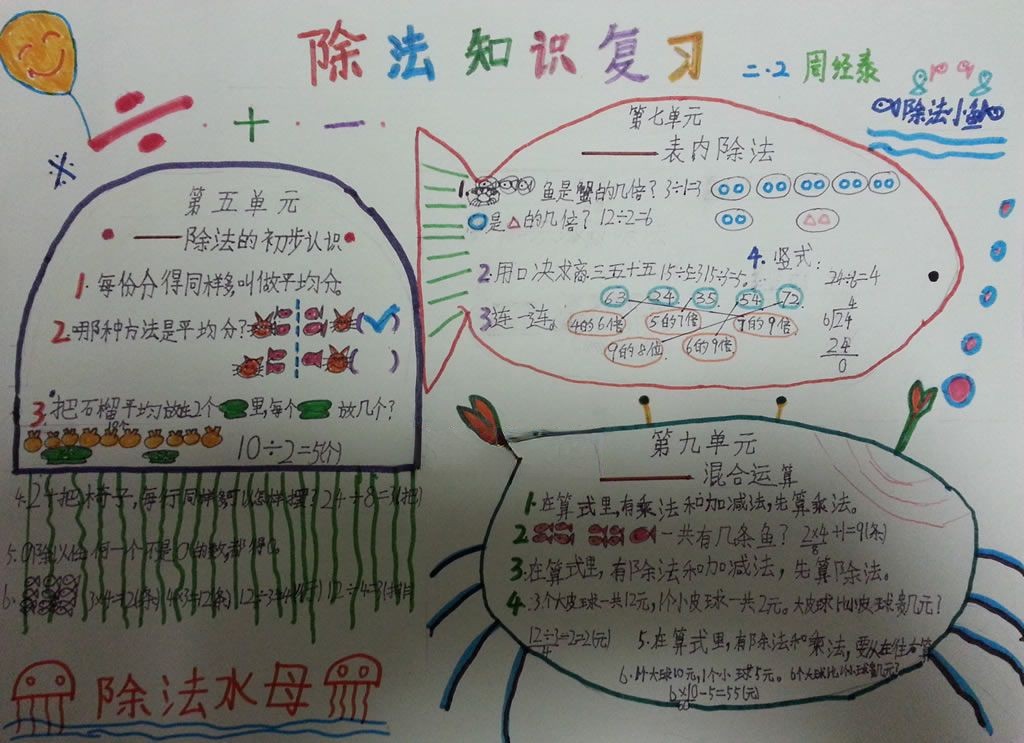 除法知识复习 二.2 周经泰
÷ · + · -
除法小鱼
第五单元
——除法的初步认识
1.每份分得同样多,叫做平均分。
2.哪种方法是平均分?(✓)
( )
3.把石榴平均放在2个里,每个放几个?
10个
10÷2=5(个)
4.24把椅子,每行同样多,可以怎样摆?24÷8=3(把)
5.0除以任何一个不是0的数,都得0。
6. 3×4=12(条) 4×3=12(条) 12÷3=4(条) 12÷4=3(排)
除法水母
第七单元
——表内除法
1. 鱼是蟹的几倍?3÷1=3
是△的几倍?12÷2=6
2.用口决求商 三五十五 15÷5=3 15÷3=5。
3.连一连。
63 24 35 54 72
4的6倍 5的7倍 7的9倍
9的8倍 6的9倍
4.竖式:
24÷6=4
4
6 24
24
0
第九单元
——混合运算
1.在算式里,有乘法和加减法,先算乘法。
2. 一共有几条鱼?2×4+1=9(条)
8
3.在算式里,有除法和加减法,先算除法。
4.3个大皮球一共12元,1个小皮球一共2元。大皮球比小皮球贵几元?
12÷3-2=2(元)
4
5.在算式里,有除法和乘法,要从左往右算
6.1个大球10元,1个小球5元。6个大球比1个小球贵几元?
6×10-5=55(元)
60